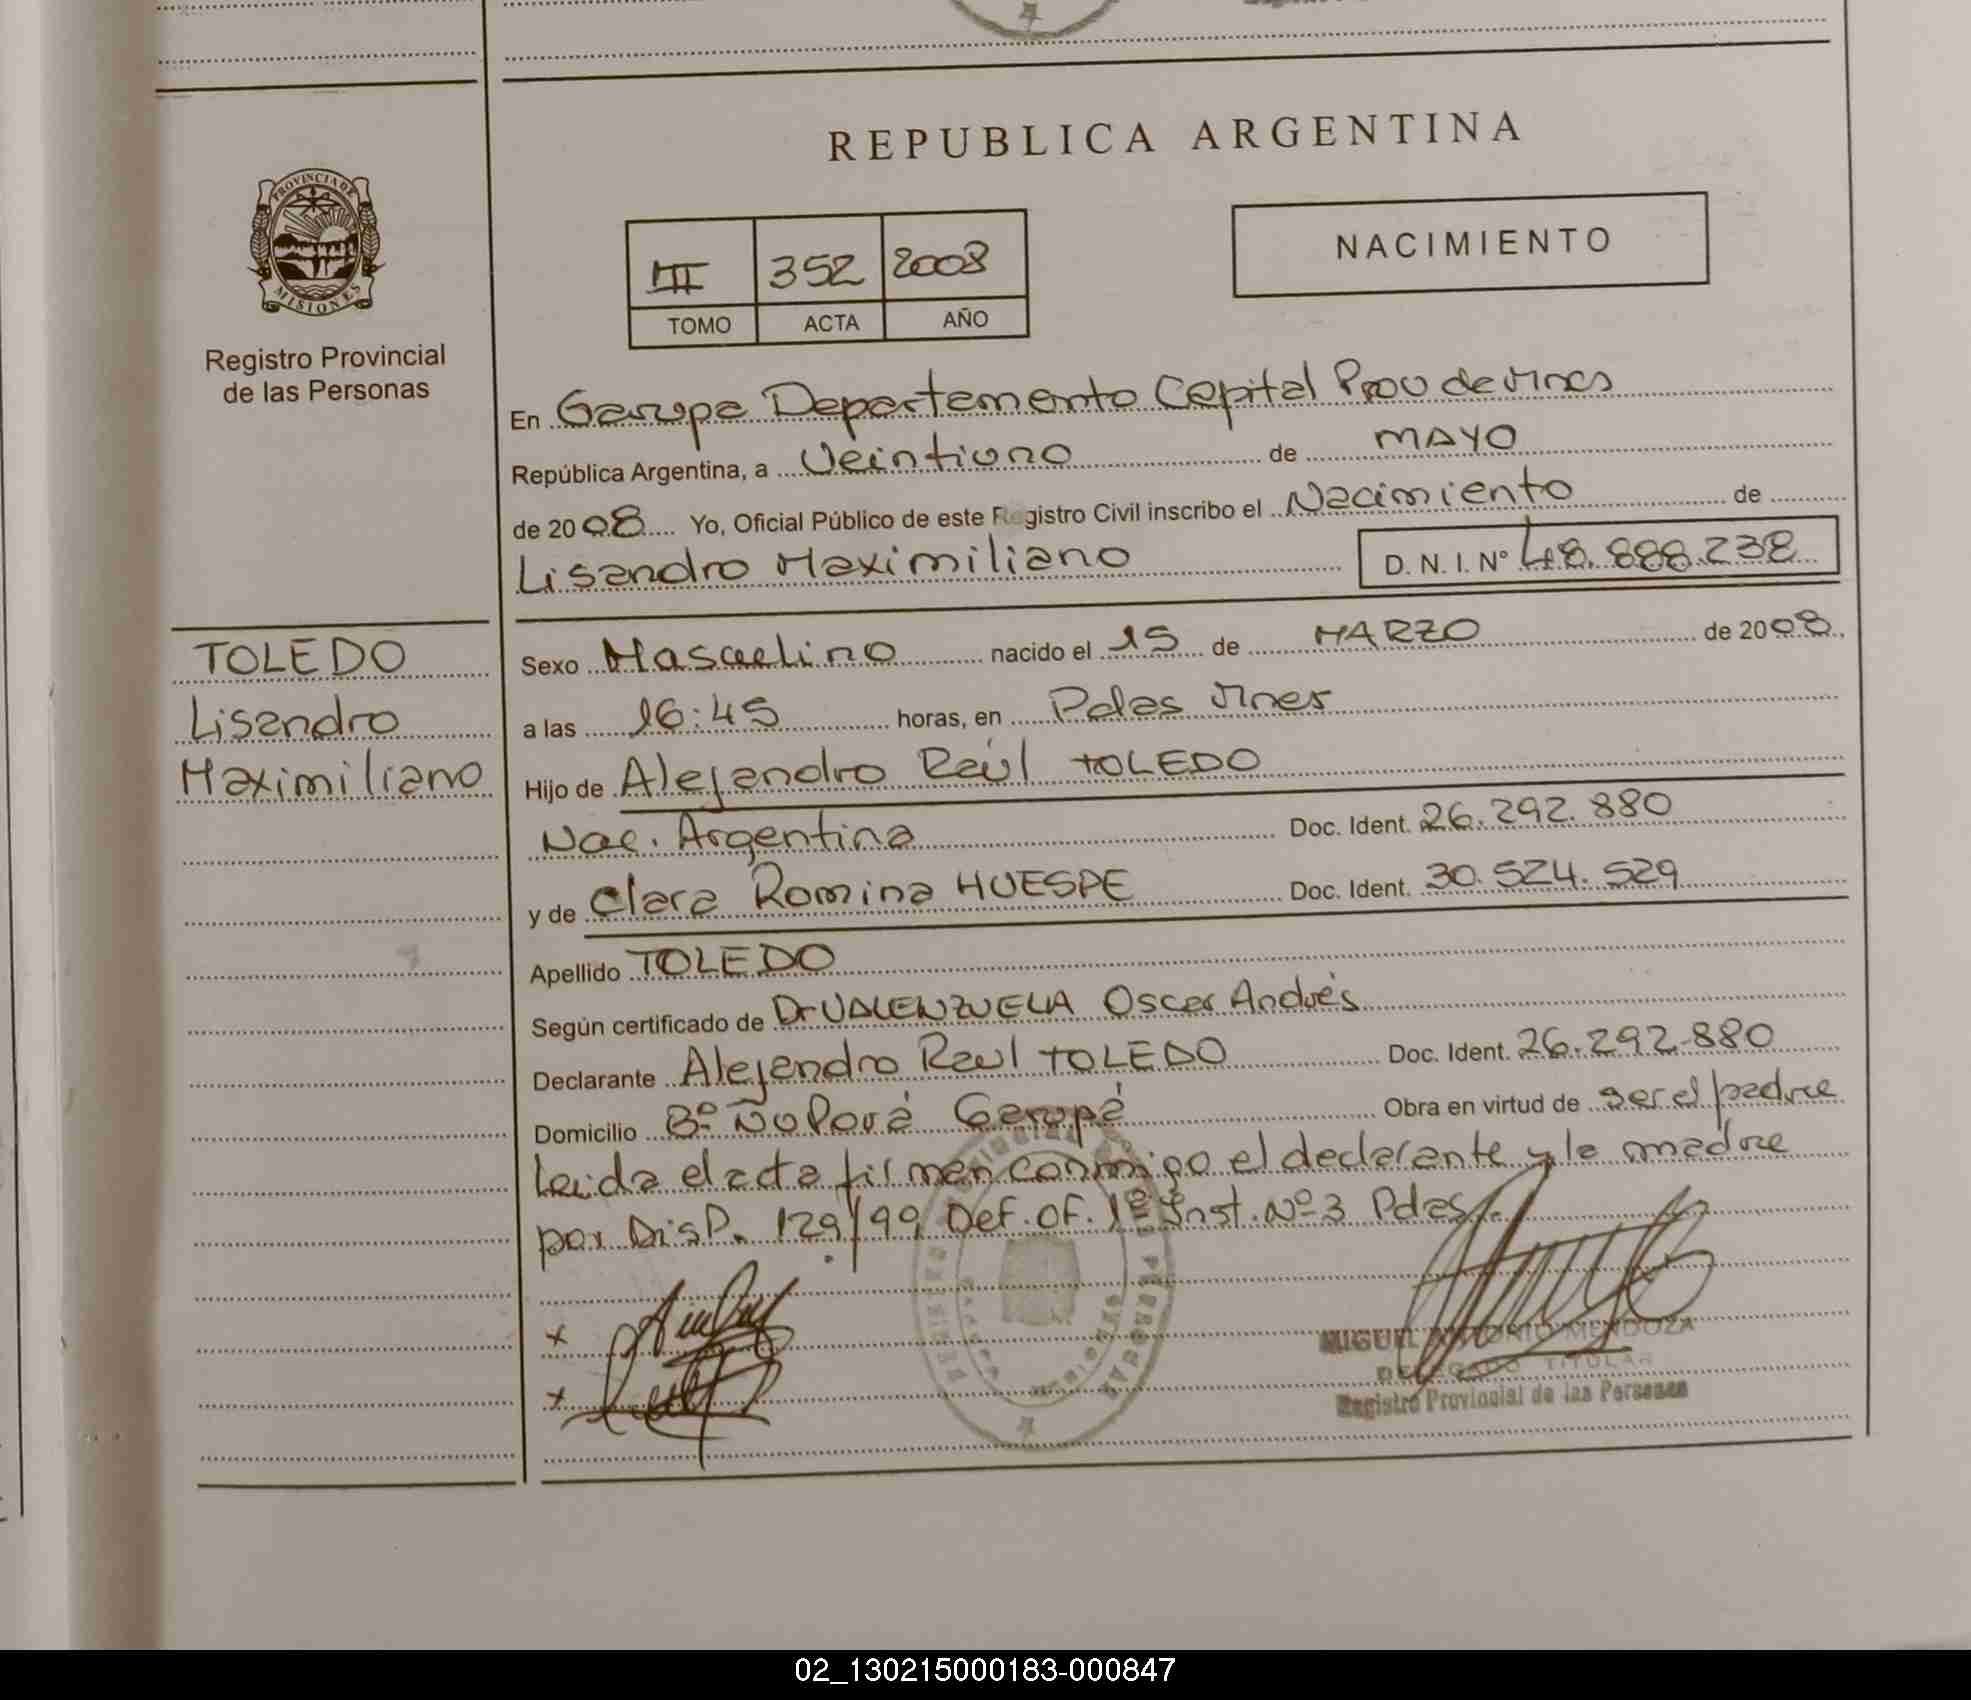 PROVINCIA DE
MISIONES
Registro Provincial
de las Personas
TOLEDO
Lisandro
Maximiliano
REPUBLICA ARGENTINA
III 352 2008
TOMO ACTA AÑO
NACIMIENTO
En Garupa Departamento Capital Prov de Mnes
República Argentina, a Veintiuno de MAYO
de 2008 Yo, Oficial Público de este Registro Civil inscribo el Nacimiento de
Lisandro Maximiliano D. N. I. Nº 48.888.238
Sexo Masculino nacido el 15 de MARZO de 2008,
a las 16:45 horas, en Pdas Mnes
Hijo de Alejandro Raúl TOLEDO
Nac. Argentina Doc. Ident. 26.292.880
y de Clara Romina HUESPE Doc. Ident. 30.524.529
Apellido TOLEDO
Según certificado de Dr VALENZUELA Oscar Andrés
Declarante Alejandro Raul TOLEDO Doc. Ident. 26.292.880
Domicilio Bº Ñu Porá Garupá Obra en virtud de ser el padre
Leida el acta firman conmigo el declarante y la madre
por Disp. 129/99 Def. Of. 1º Inst. Nº 3 Pdas.
x
x
MIGUEL ANTONIO MENDOZA
DELEGADO TITULAR
Registro Provincial de las Personas
02_130215000183-000847